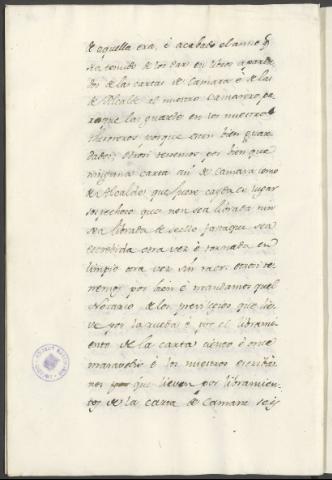 de aquella era, é acabado el anno q
sea tenido de los dar en libros aparta
dos de las cartas de Camara é de las
de Alcalde al nuestro Camarero pa
ra que las guarde en los nuestros
thesoreros porque esten bien guar
dados, otrosi tenemos por bien que
ninguna carta asi de Camara como
de Alcaldes que fuere en lugar
sospechoso que non sea librada nin
sea librada de sello fasta que sea
escrebida otra vez é tornada en
limpio otra vez sin raer, otrosi te
nemos por bien é mandamos quel
Notario de los previllegios, que lie
ve por la rueda é por el libram
ento de la carta ciento é once
maravedis é los nuestros escriba
nos que lieven por libramien
tos de la carta de Camara seis